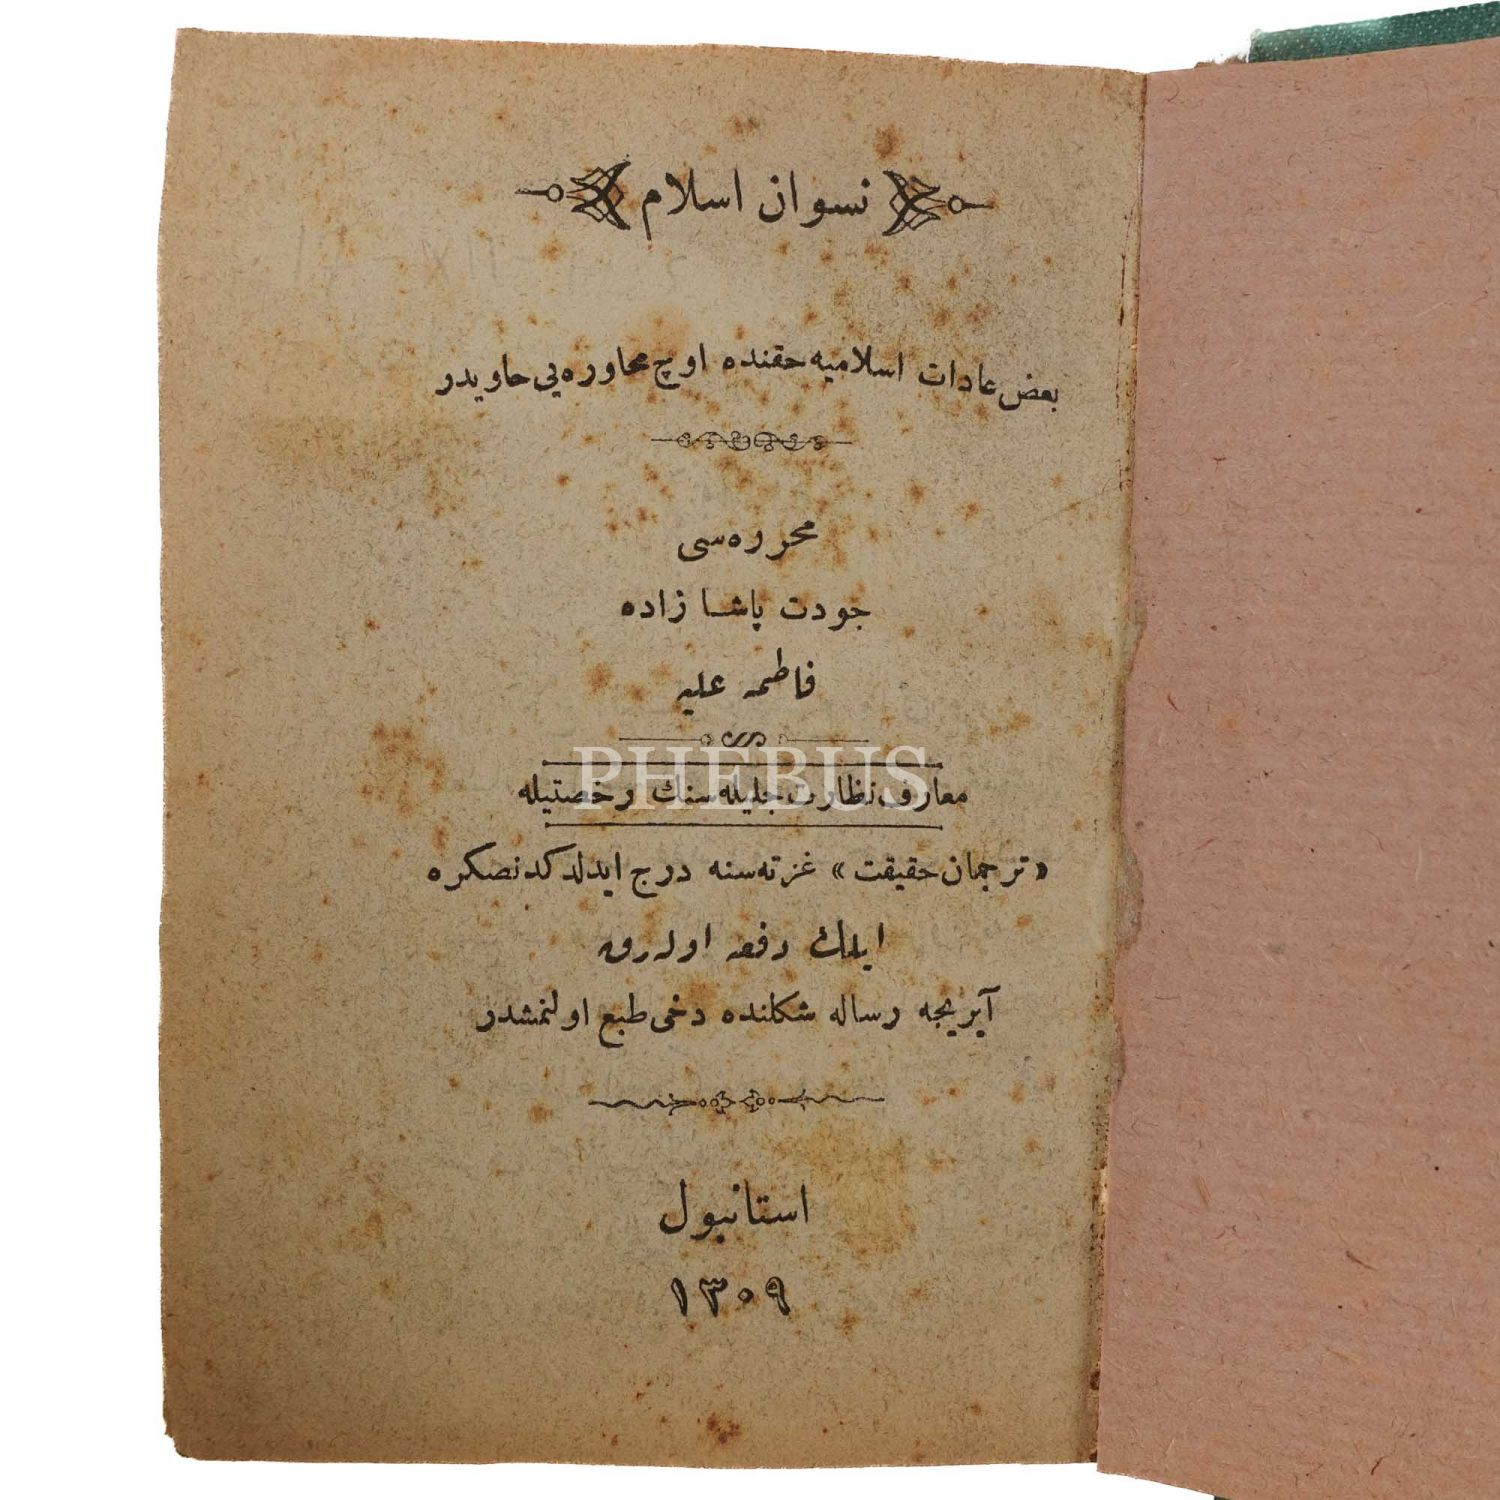 نسوان اسلام
بعض عادات اسلاميه حقنده اوچ محاوره‌يى حاويدر
محرره‌سى
جودت پاشا زاده
فاطمه عليه
PHEBUS
معارف نظارت جليله‌سنك رخصتيله
«ترجمان حقيقت» غزته‌سنه درج ايدلدكدنصكره
ايلك دفعه اوله‌رق
آيريجه رساله شكلنده دخى طبع اولنمشدر
استانبول
١٣٠٩